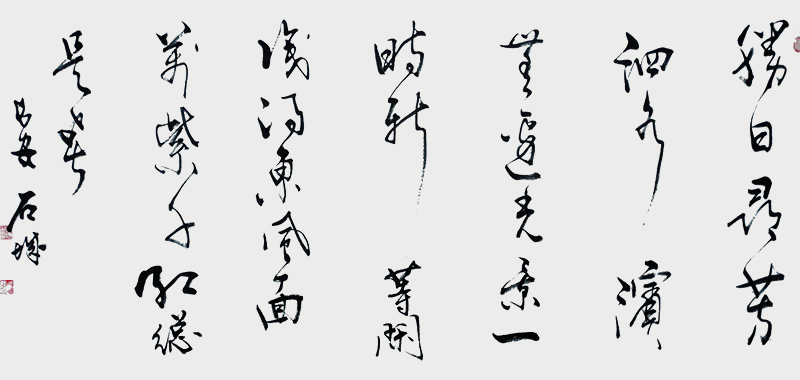 勝日尋芳
泗水濱
無邊光景一
時新 等閑
識得東風面
萬紫千紅總
是春
長安 石城